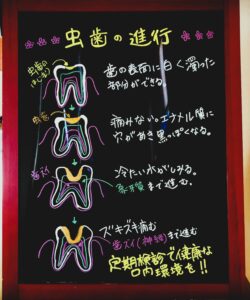 虫歯の進行
歯の表面に白く濁った
部分ができる。
痛みない。エナメル質に
穴があき黒っぽくなる。
冷たい水がしみる。
象牙質まで進む。
ズキズキ痛む
歯ズイ(神経)まで進む
定期検診で健康な
口内環境を!!